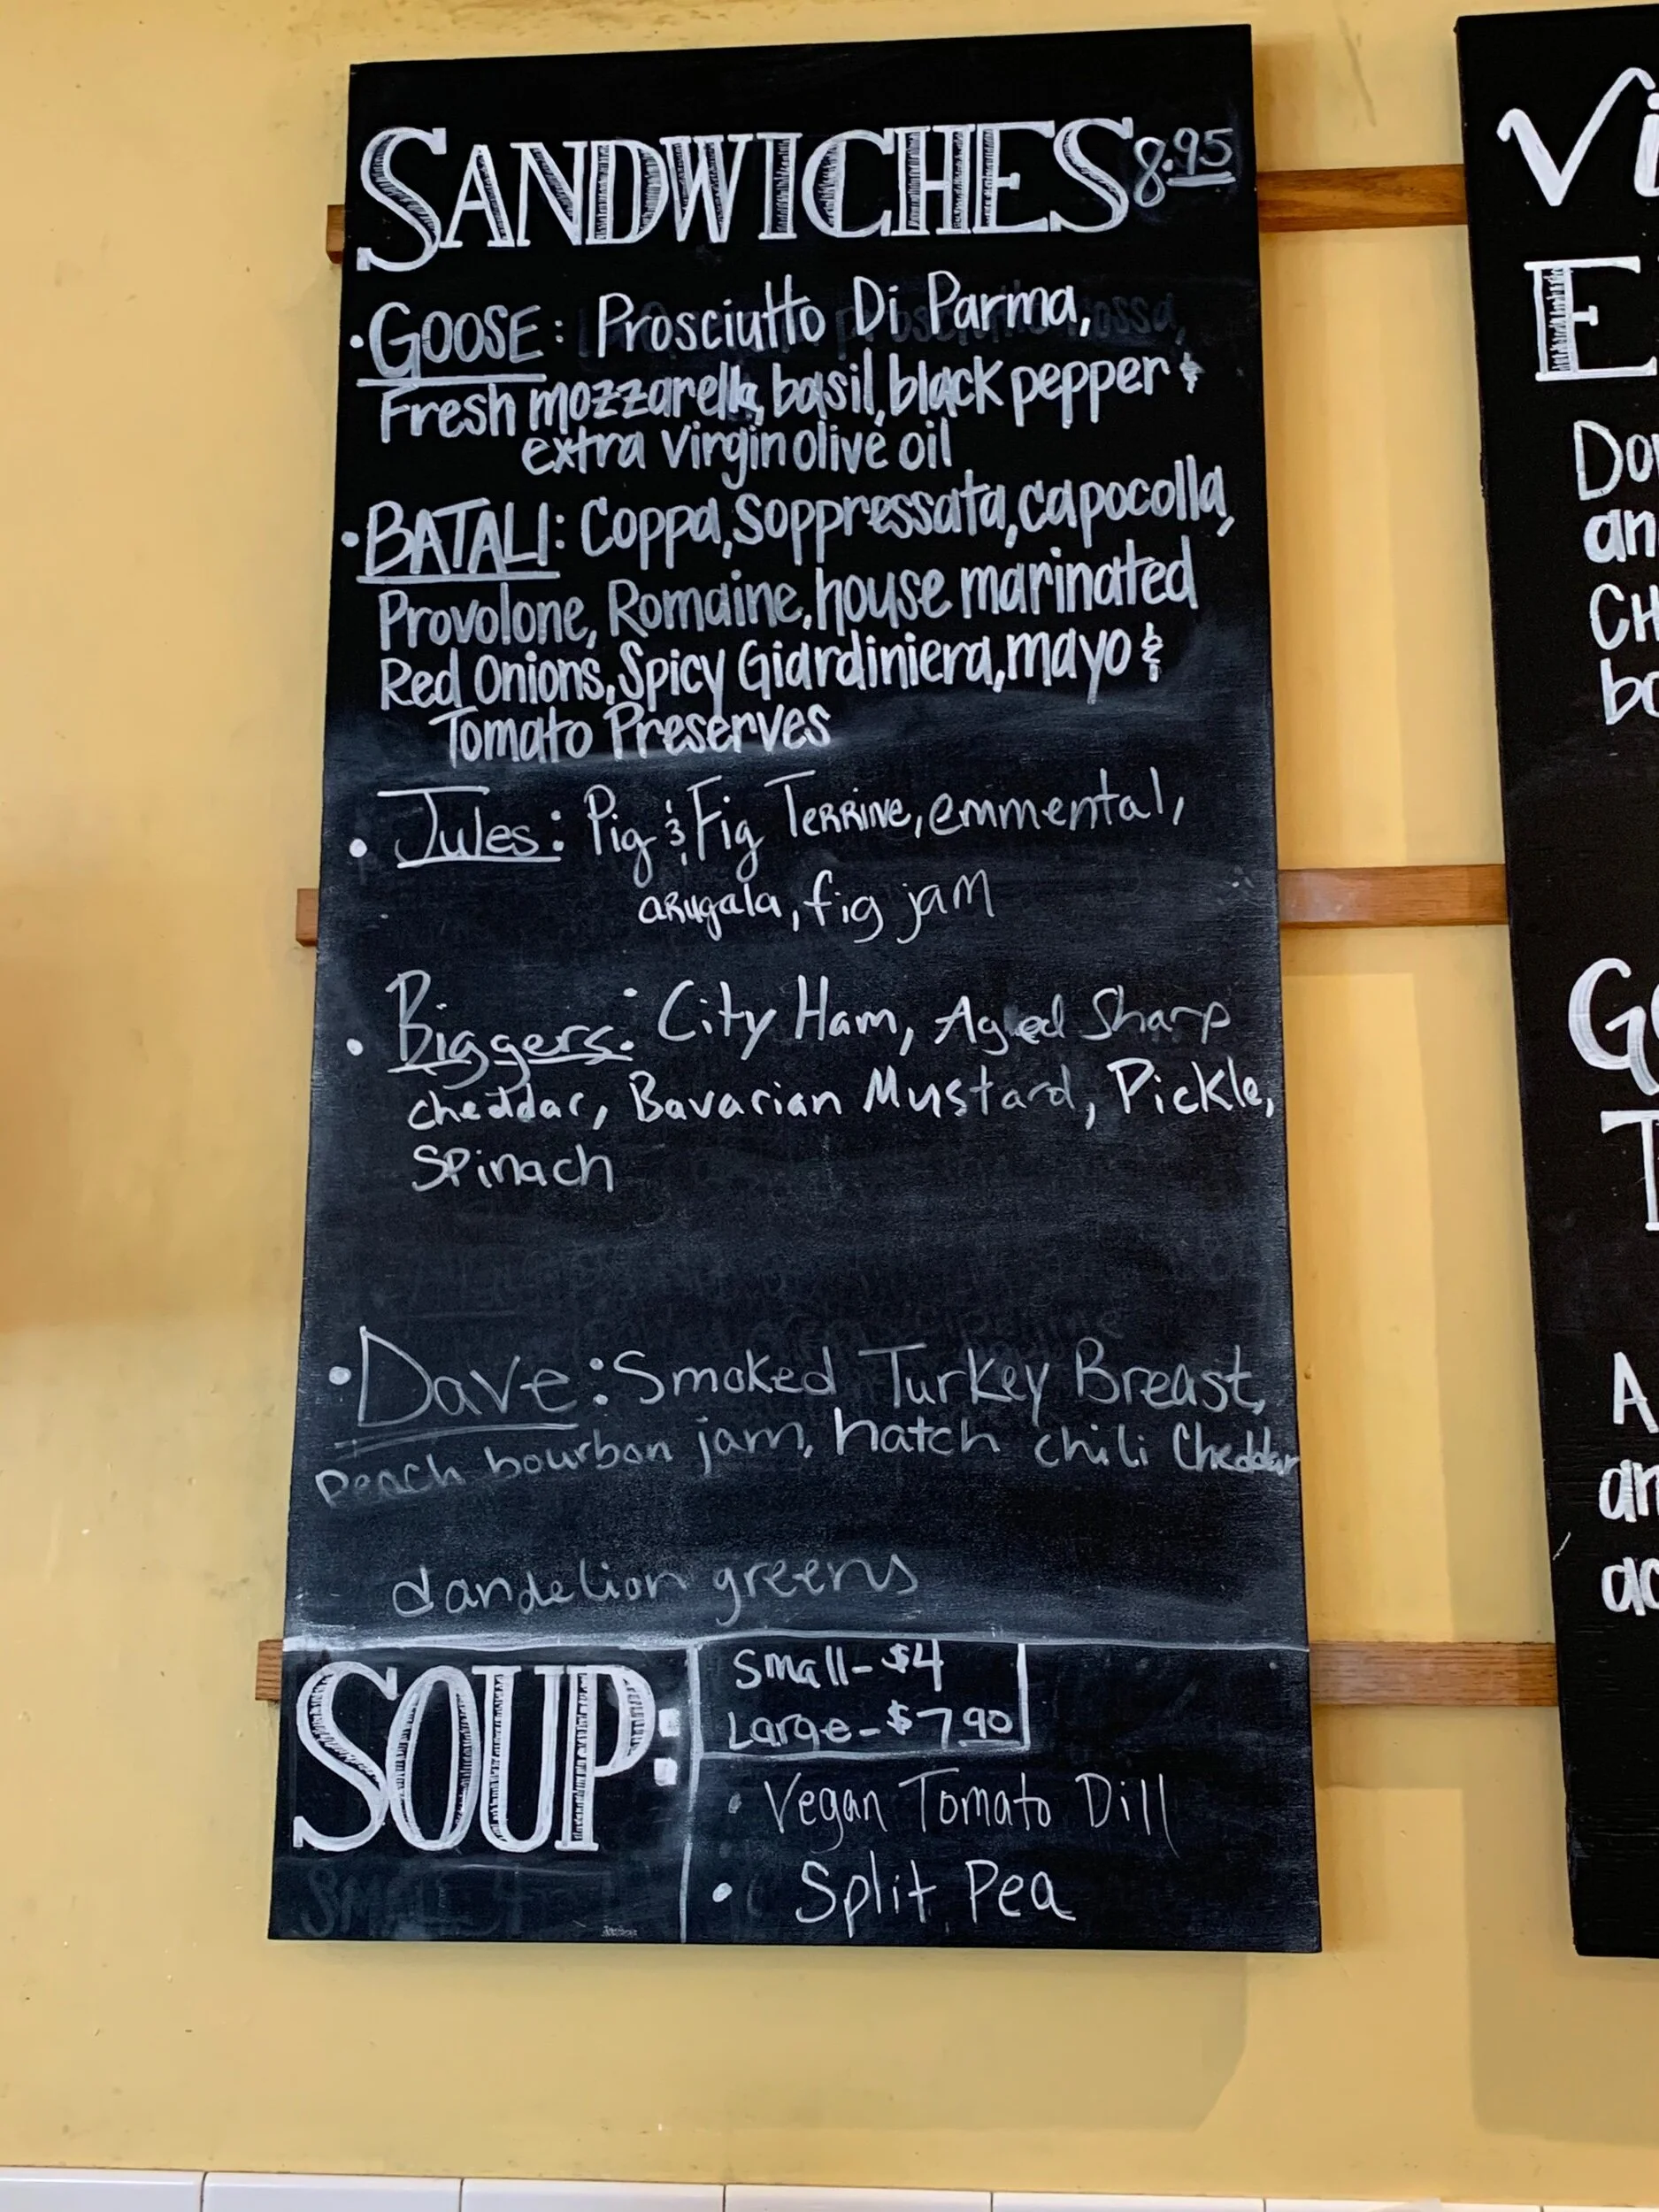 SANDWICHES 8.95
• GOOSE: Prosciutto Di Parma,
Fresh mozzarella, basil, black pepper &
extra virgin olive oil
• BATALI: Coppa, Soppressata, capocolla,
Provolone, Romaine, house marinated
Red Onions, Spicy Giardiniera, mayo &
Tomato Preserves
• Jules: Pig & Fig Terrine, emmental,
arugala, fig jam
• Biggers: City Ham, Aged Sharp
cheddar, Bavarian Mustard, Pickle,
Spinach
• Dave: Smoked Turkey Breast,
peach bourbon jam, hatch chili Cheddar
dandelion greens
SOUP:
Small - $4
Large - $7.90
• Vegan Tomato Dill
• Split Pea
Vi
E
Do
an
CH
bo
G
T
A
an